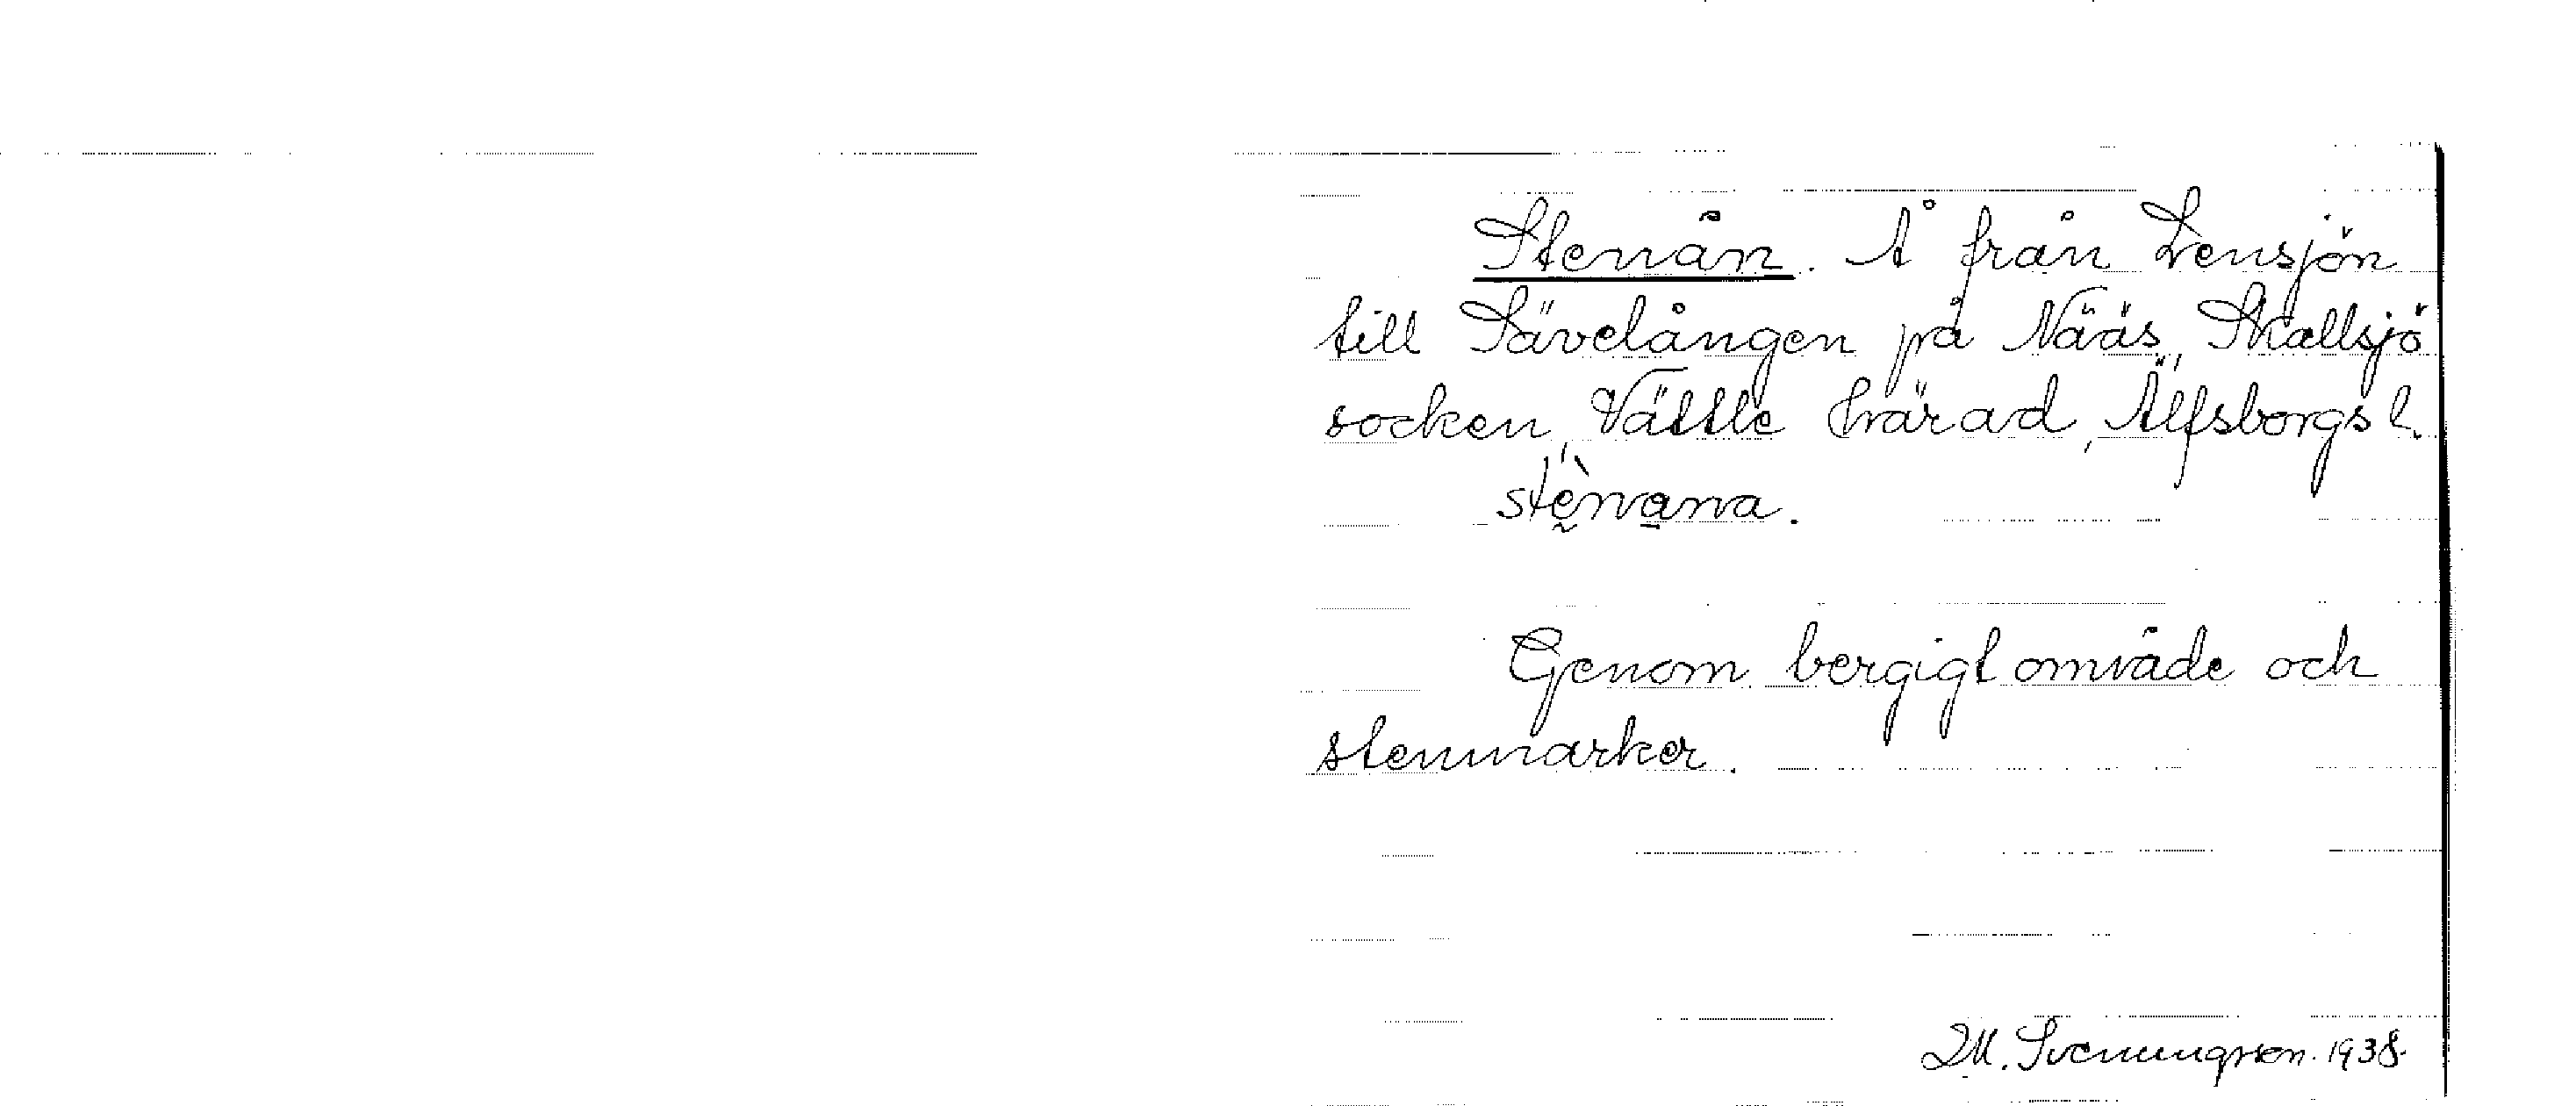 Stenån. Å från Lensjön
till Sävelången på Nääs, Skallsjö
socken, Vättle härad, Älfsborgs l.
stènana.
Genom bergigt område och
stenmarker.
M. Svenungson. 1938.